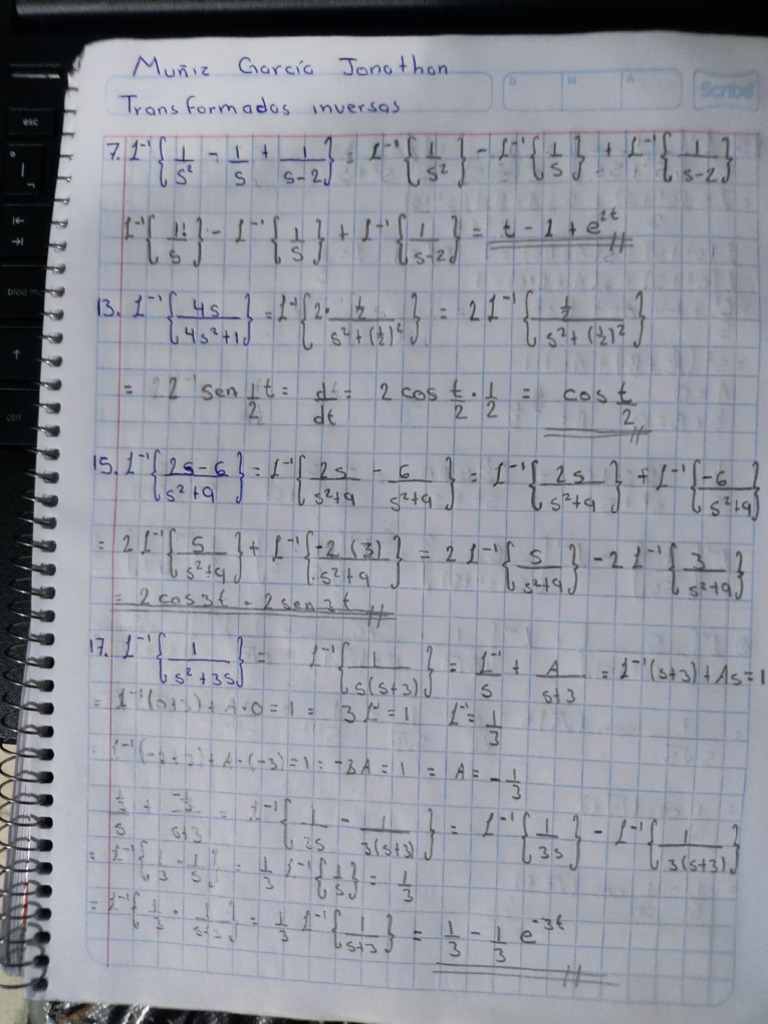 Muñiz García Jonathan
D M A Scribe
Transformadas inversas
7. L⁻¹{1/s² - 1/s + 1/(s-2)} = L⁻¹{1/s²} - L⁻¹{1/s} + L⁻¹{1/(s-2)}
L⁻¹{1!/s} - L⁻¹{1/s} + L⁻¹{1/(s-2)} = t - 1 + e^(2t)
13. L⁻¹{4s/(4s²+1)} = L⁻¹{2·(1/2)/(s²+(1/2)²)} = 2 L⁻¹{(1/2)/(s²+(1/2)²)}
= 2 sen 1/2 t = d/dt = 2 cos t/2 · 1/2 = cos t/2
15. L⁻¹{(2s-6)/(s²+9)} = L⁻¹{2s/(s²+9) - 6/(s²+9)} = L⁻¹{2s/(s²+9)} + L⁻¹{-6/(s²+9)}
= 2 L⁻¹{s/(s²+9)} + L⁻¹{-2(3)/(s²+9)} = 2 L⁻¹{s/(s²+9)} - 2 L⁻¹{3/(s²+9)}
= 2 cos 3t - 2 sen 3t
17. L⁻¹{1/(s²+3s)} = L⁻¹{1/(s(s+3))} = L⁻¹/s + A/(s+3) = L⁻¹(s+3) + As = 1
= L⁻¹(0+3) + A·0 = 1 = 3L⁻¹ = 1 L⁻¹ = 1/3
= L⁻¹(-3+3) + A·(-3) = 1 = -3A = 1 = A = -1/3
(1/3)/s + (-1/3)/(s+3) = L⁻¹{1/3s - 1/(3(s+3))} = L⁻¹{1/3s} - L⁻¹{1/(3(s+3))}
= L⁻¹{1/3 · 1/s} = 1/3 L⁻¹{1/s} = 1/3
= L⁻¹{1/3 · 1/(s+3)} = 1/3 L⁻¹{1/(s+3)} = 1/3 - 1/3 e^(-3t)
esc
bloq m
ctrl